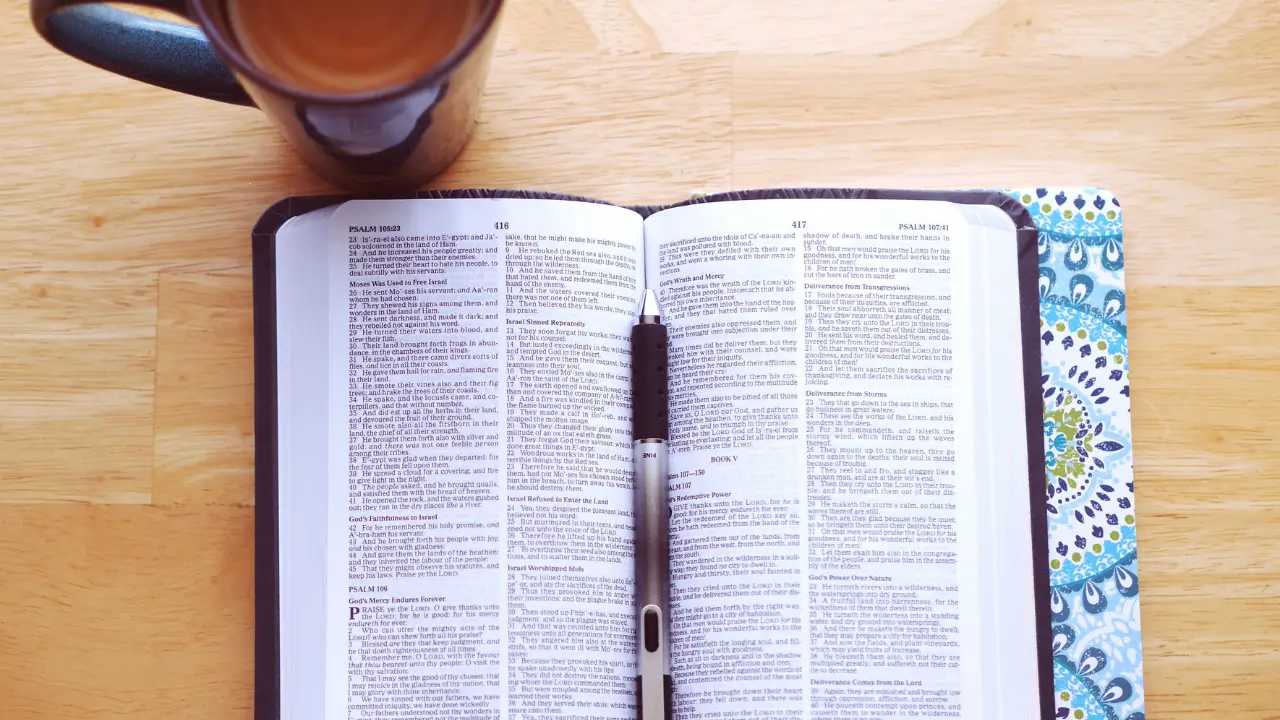 PSALM 105:23
416
23 Is'-ra-el also came into E'-gypt; and Ja'-
cob sojourned in the land of Ham.
24 And he increased his people greatly; and
made them stronger than their enemies.
25 He turned their heart to hate his people, to
deal subtilly with his servants.
Moses Was Used to Free Israel
26 He sent Mo'-ses his servant; and Aa'-ron
whom he had chosen.
27 They shewed his signs among them, and
wonders in the land of Ham.
28 He sent darkness, and made it dark; and
they rebelled not against his word.
29 He turned their waters into blood, and
slew their fish.
30 Their land brought forth frogs in abun-
dance, in the chambers of their kings.
31 He spake, and there came divers sorts of
flies, and lice in all their coasts.
32 He gave them hail for rain, and flaming fire
in their land.
33 He smote their vines also and their fig
trees; and brake the trees of their coasts.
34 He spake, and the locusts came, and ca-
terpillers, and that without number,
35 And did eat up all the herbs in their land,
and devoured the fruit of their ground.
36 He smote also all the firstborn in their
land, the chief of all their strength.
37 He brought them forth also with silver and
gold: and there was not one feeble person
among their tribes.
38 E'-gypt was glad when they departed: for
the fear of them fell upon them.
39 He spread a cloud for a covering; and fire
to give light in the night.
40 The people asked, and he brought quails,
and satisfied them with the bread of heaven.
41 He opened the rock, and the waters gushed
out; they ran in the dry places like a river.
God's Faithfulness to Israel
42 For he remembered his holy promise, and
A'-bra-ham his servant.
43 And he brought forth his people with joy,
and his chosen with gladness:
44 And gave them the lands of the heathen:
and they inherited the labour of the people;
45 That they might observe his statutes, and
keep his laws. Praise ye the LORD.
PSALM 106
God's Mercy Endures Forever
PRAISE ye the LORD. O give thanks unto
the LORD; for he is good: for his mercy
endureth for ever.
2 Who can utter the mighty acts of the
LORD? who can shew forth all his praise?
3 Blessed are they that keep judgment, and
he that doeth righteousness at all times.
4 Remember me, O LORD, with the favour
that thou bearest unto thy people: O visit me
with thy salvation;
5 That I may see the good of thy chosen, that
I may rejoice in the gladness of thy nation, that
I may glory with thine inheritance.
6 We have sinned with our fathers, we have
committed iniquity, we have done wickedly.
7 Our fathers understood not thy wonders in
sake, that he might make his mighty power
be known.
9 He rebuked the Red sea also, and it was
dried up: so he led them through the depths, as
through the wilderness.
10 And he saved them from the hand of him
that hated them, and redeemed them from the
hand of the enemy.
11 And the waters covered their enemies:
there was not one of them left.
12 Then believed they his words; they sang
his praise.
Israel Sinned Repeatedly
13 They soon forgat his works; they waited
not for his counsel:
14 But lusted exceedingly in the wilderness,
and tempted God in the desert.
15 And he gave them their request; but sent
leanness into their soul.
16 They envied Mo'-ses also in the camp, and
Aa'-ron the saint of the LORD.
17 The earth opened and swallowed up
than and covered the company of A-bi'-ram.
18 And a fire was kindled in their company;
the flame burned up the wicked.
19 They made a calf in Ho'-reb, and
shipped the molten image.
20 Thus they changed their glory into the
similitude of an ox that eateth grass.
21 They forgat God their saviour, which had
done great things in E'-gypt;
22 Wondrous works in the land of Ham,
terrible things by the Red sea.
23 Therefore he said that he would destroy
them, had not Mo'-ses his chosen stood before
him in the breach, to turn away his wrath, lest
he should destroy them.
Israel Refused to Enter the Land
24 Yea, they despised the pleasant land, they
believed not his word:
25 But murmured in their tents, and hearkened
not unto the voice of the LORD.
26 Therefore he lifted up his hand against
them, to overthrow them in the wilderness:
27 To overthrow their seed also among the
nations, and to scatter them in the lands.
Israel Worshipped Idols
28 They joined themselves also unto Ba'-al-
pe'-or, and ate the sacrifices of the dead.
29 Thus they provoked him to anger with
their inventions: and the plague brake in upon
them.
30 Then stood up Phin'-e-has, and executed
judgment: and so the plague was stayed.
31 And that was counted unto him for righ-
teousness unto all generations for evermore.
32 They angered him also at the waters of
strife, so that it went ill with Mo'-ses for their
sakes:
33 Because they provoked his spirit, so that
he spake unadvisedly with his lips.
34 They did not destroy the nations, concern-
ing whom the LORD commanded them:
35 But were mingled among the heathen, and
learned their works.
36 And they served their idols: which were
37 Yea, they sacrificed their sons
FINE
417
PSALM 107:41
they sacrificed unto the idols of Ca'-na-an: and
the land was polluted with blood.
39 Thus were they defiled with their own
works, and went a whoring with their own in-
ventions.
God's Wrath and Mercy
40 Therefore was the wrath of the LORD kin-
dled against his people, insomuch that he ab-
horred his own inheritance.
And he gave them into the hand of the hea-
and they that hated them ruled over
Their enemies also oppressed them, and
were brought into subjection under their
Many times did he deliver them; but they
provoked him with their counsel, and were
brought low for their iniquity.
Nevertheless he regarded their affliction,
he heard their cry:
And he remembered for them his cov-
and repented according to the multitude
mercies.
He made them also to be pitied of all those
carried them captives.
Save us, O LORD our God, and gather us
from among the heathen, to give thanks unto
holy name, and to triumph in thy praise.
Blessed be the LORD God of Is'-ra-el from
everlasting to everlasting: and let all the people
A'-men. Praise ye the LORD.
BOOK V
107—150
PSALM 107
God's Redemptive Power
O GIVE thanks unto the LORD, for he is
good: for his mercy endureth for ever.
Let the redeemed of the LORD say so,
whom he hath redeemed from the hand of the
And gathered them out of the lands, from
the east, and from the west, from the north, and
the south.
They wandered in the wilderness in a soli-
way; they found no city to dwell in.
Hungry and thirsty, their soul fainted in
Then they cried unto the LORD in their
and he delivered them out of their dis-
And he led them forth by the right way,
that they might go to a city of habitation.
Oh that men would praise the LORD for his
goodness, and for his wonderful works to the
For he satisfieth the longing soul, and fill-
the hungry soul with goodness.
Such as sit in darkness and in the shadow
death, being bound in affliction and iron;
Because they rebelled against the words of
and contemned the counsel of the most
Therefore he brought down their heart
labour; they fell down, and there was
Then they cried unto the LORD in their
shadow of death, and brake their bands in
sunder.
15 Oh that men would praise the LORD for his
goodness, and for his wonderful works to the
children of men!
16 For he hath broken the gates of brass, and
cut the bars of iron in sunder.
Deliverance from Transgressions
17 Fools because of their transgression, and
because of their iniquities, are afflicted.
18 Their soul abhorreth all manner of meat;
and they draw near unto the gates of death.
19 Then they cry unto the LORD in their trou-
ble, and he saveth them out of their distresses.
20 He sent his word, and healed them, and de-
livered them from their destructions.
21 Oh that men would praise the LORD for his
goodness, and for his wonderful works to the
children of men!
22 And let them sacrifice the sacrifices of
thanksgiving, and declare his works with re-
joicing.
Deliverance from Storms
23 They that go down to the sea in ships, that
do business in great waters;
24 These see the works of the LORD, and his
wonders in the deep.
25 For he commandeth, and raiseth the
stormy wind, which lifteth up the waves
thereof.
26 They mount up to the heaven, they go
down again to the depths: their soul is melted
because of trouble.
27 They reel to and fro, and stagger like a
drunken man, and are at their wit's end.
28 Then they cry unto the LORD in their trou-
ble, and he bringeth them out of their dis-
tresses.
29 He maketh the storm a calm, so that the
waves thereof are still.
30 Then are they glad because they be quiet;
so he bringeth them unto their desired haven.
31 Oh that men would praise the LORD for his
goodness, and for his wonderful works to the
children of men!
32 Let them exalt him also in the congrega-
tion of the people, and praise him in the assem-
bly of the elders.
God's Power Over Nature
33 He turneth rivers into a wilderness, and
the watersprings into dry ground;
34 A fruitful land into barrenness, for the
wickedness of them that dwell therein.
35 He turneth the wilderness into a standing
water, and dry ground into watersprings.
36 And there he maketh the hungry to dwell,
that they may prepare a city for habitation;
37 And sow the fields, and plant vineyards,
which may yield fruits of increase.
38 He blesseth them also, so that they are
multiplied greatly; and suffereth not their cat-
tle to decrease.
Deliverance Comes from the Lord
39 Again, they are minished and brought low
through oppression, affliction, and sorrow.
40 He poureth contempt upon princes, and
causeth them to wander in the wilderness,